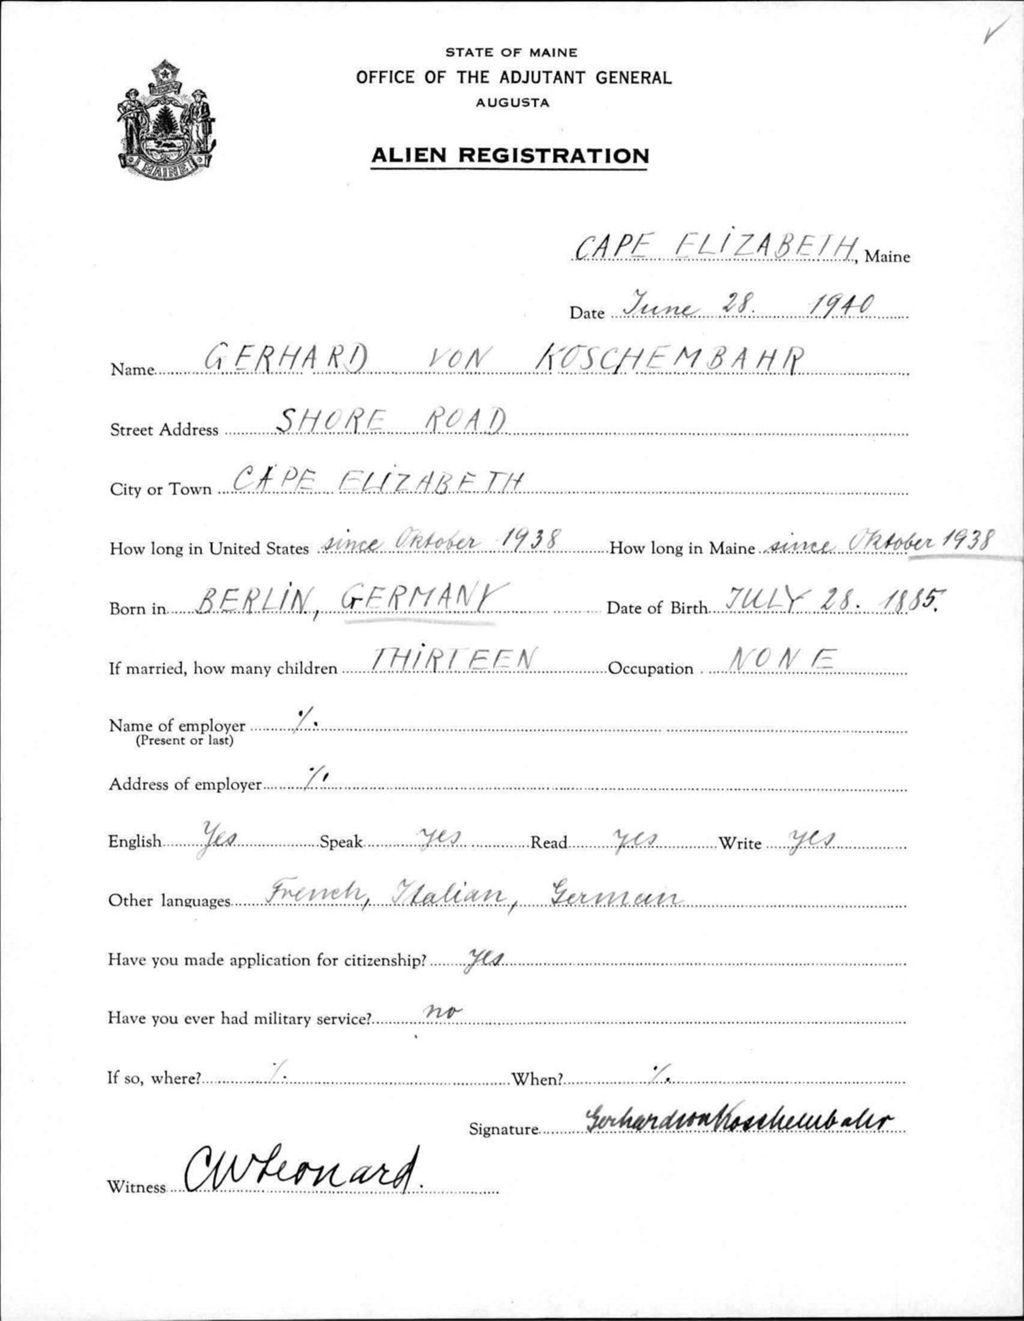 STATE OF MAINE
OFFICE OF THE ADJUTANT GENERAL
AUGUSTA
ALIEN REGISTRATION
MAINE
CAPE ELIZABETH, Maine
Date June 28. 1940
Name GERHARD VON KOSCHEMBAHR
Street Address SHORE ROAD
City or Town CAPE ELIZABETH
How long in United States since Oktober 1938 How long in Maine since Oktober 1938
Born in BERLIN, GERMANY Date of Birth JULY 28. 1885.
If married, how many children THIRTEEN Occupation NONE
Name of employer ·/.
(Present or last)
Address of employer ·/.
English Yes Speak yes Read yes Write yes
Other languages French, Italian, German
Have you made application for citizenship? yes
Have you ever had military service? no
If so, where? ·/. When? ·/.
Signature Gerhard von Koschembahr
Witness CW Leonard.